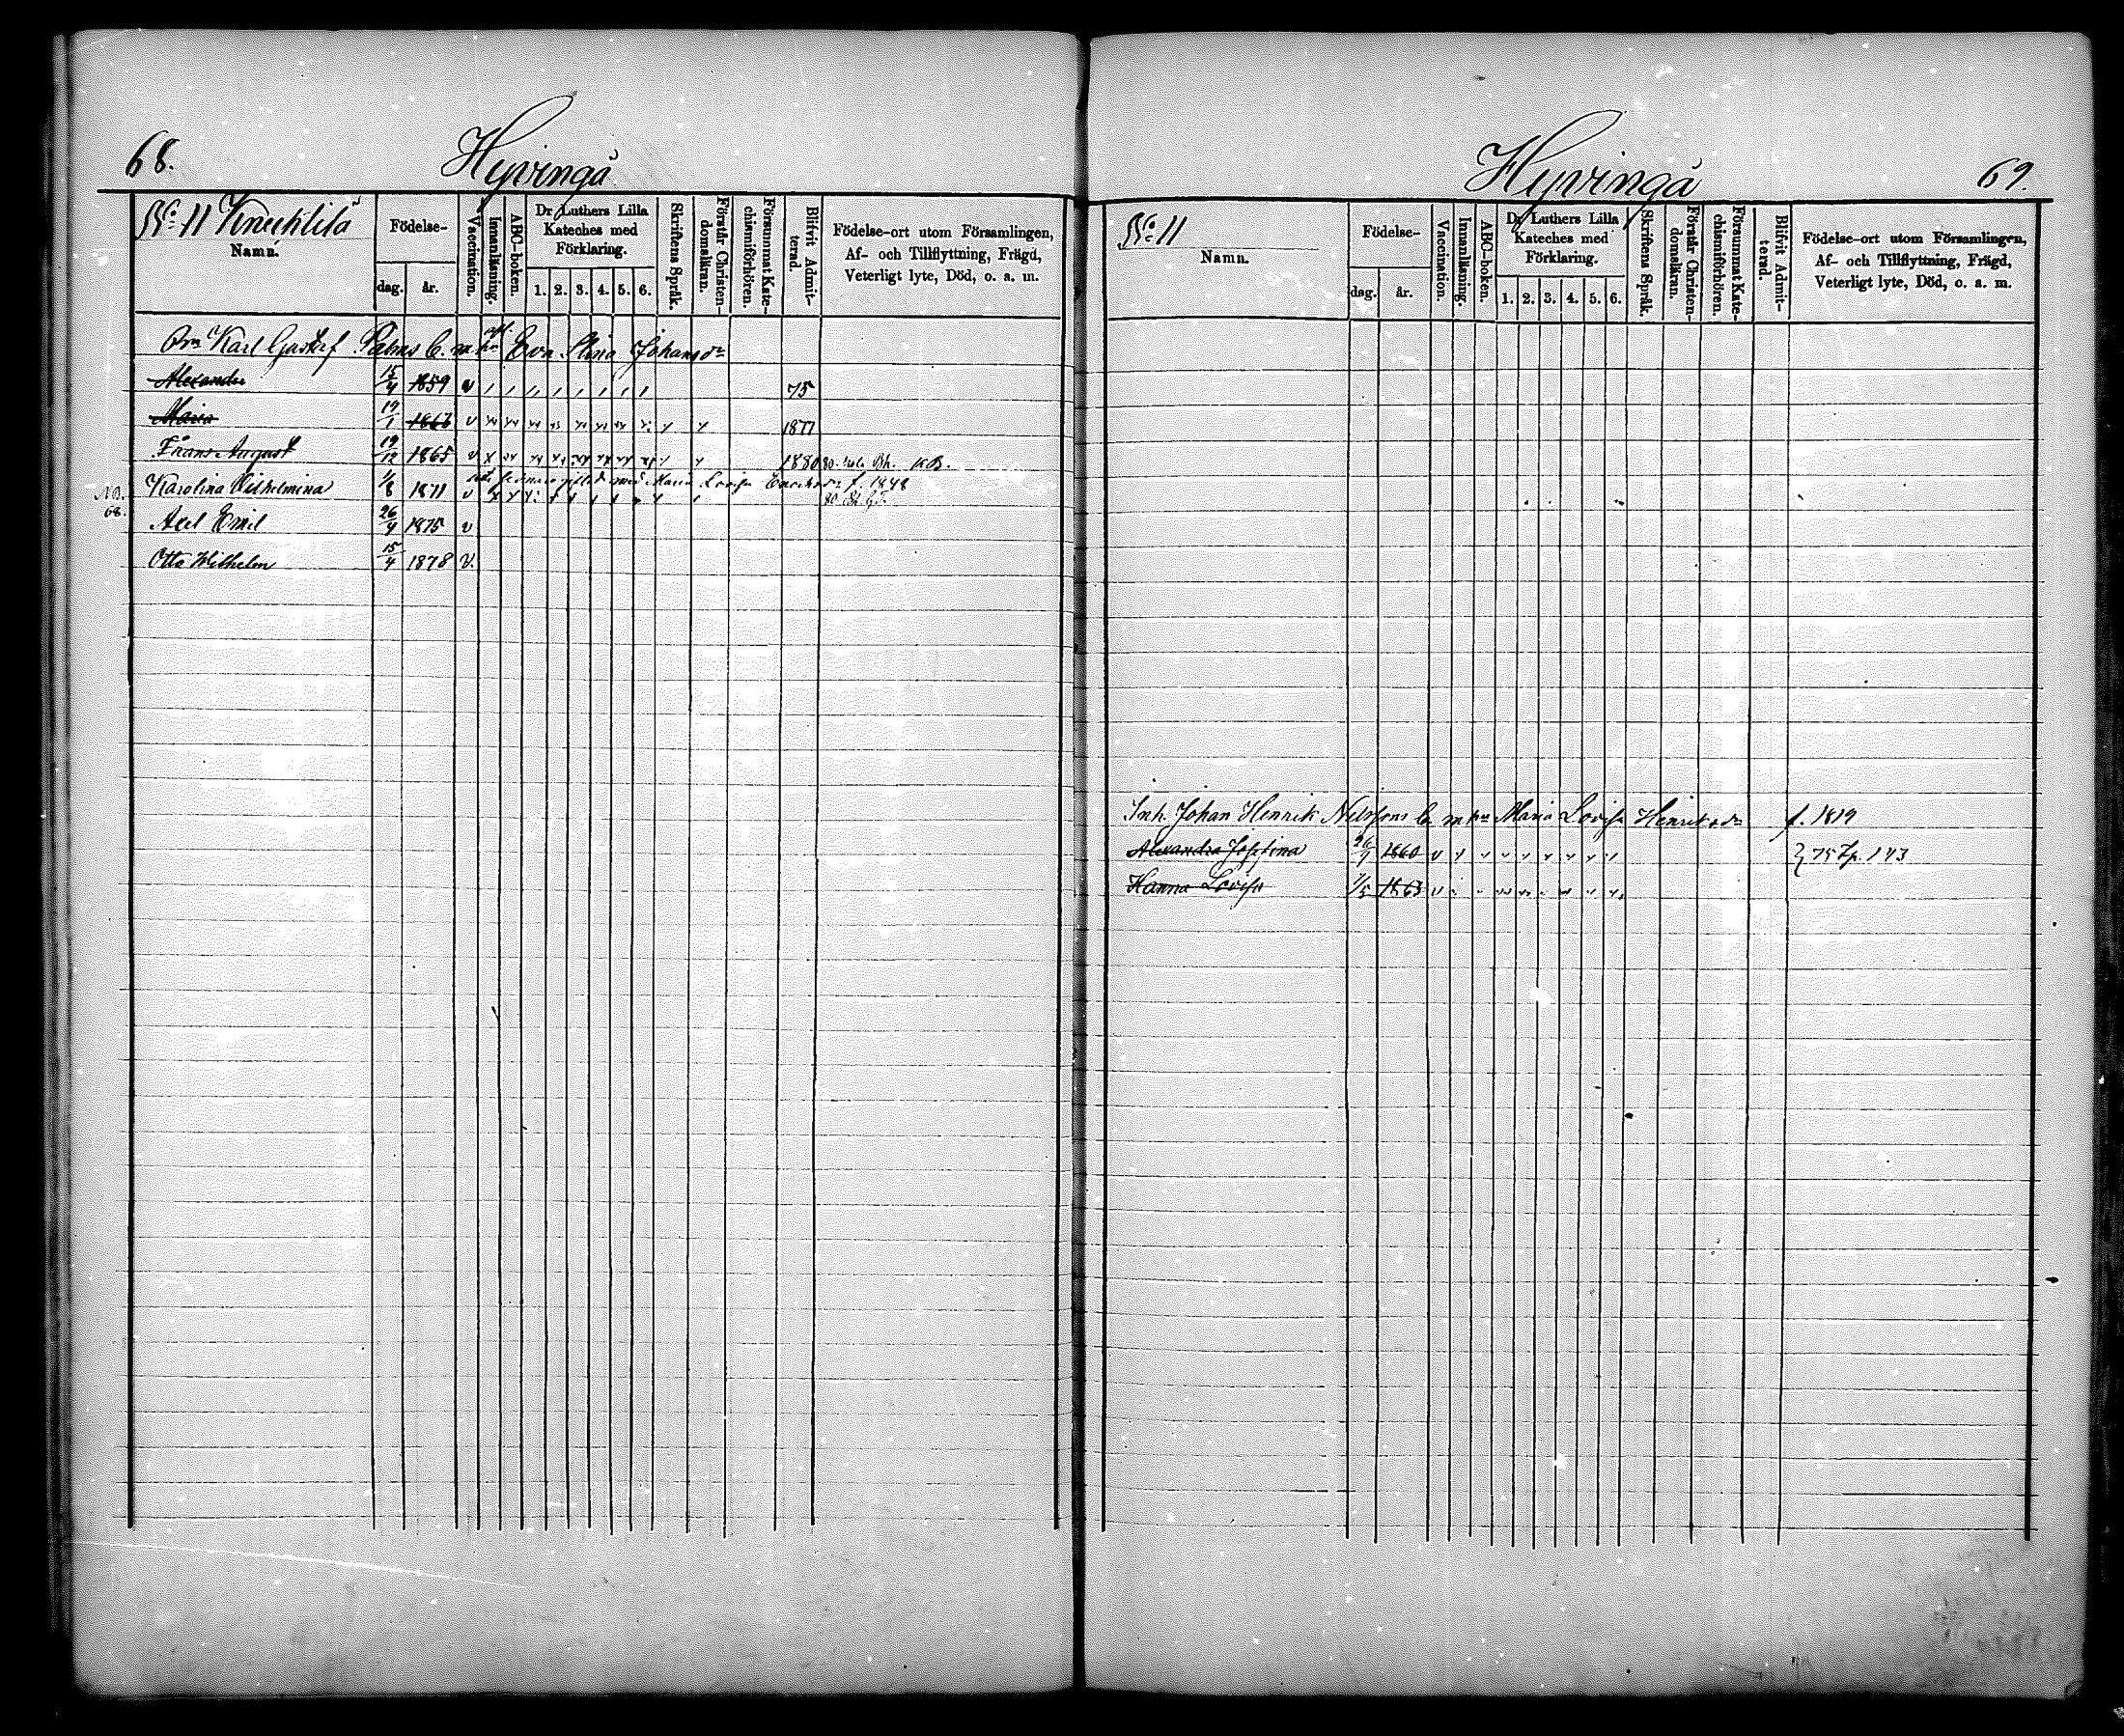 68.
Hyvingå
No 11 Knecktilä
Namn.
Födelse-
dag. år.
Vaccination.
Innanläsning.
ABC-boken.
Dr Luthers Lilla Kateches med Förklaring.
1. 2. 3. 4. 5. 6.
Skriftens Språk.
Förstår Christendomsläran.
Försummat Katechismiförhören.
Blifvit Admitterad.
Födelse-ort utom Församlingen,
Af- och Tillflyttning, Frägd,
Veterligt lyte, Död, o. a. m.
Karl Gustaf Palms b. m Eva Stina Johansdr
Alexander 15/4 1859 v 75
Maria 19/1 1863 v 1877
Frans August 19/12 1865 v 1880 80. Bh. KB.
med Maria Lovisa f. 1848
NB. 68. Karolina Wilhelmina 1/8 1871 v
Axel Emil 26/4 1875 v
Otto Wilhelm 15/4 1878 v.
Hyvingå
69.
No 11
Namn.
Födelse-
dag. år.
Vaccination.
Innanläsning.
ABC-boken.
Dr Luthers Lilla Kateches med Förklaring.
1. 2. 3. 4. 5. 6.
Skriftens Språk.
Förstår Christendomsläran.
Försummat Katechismiförhören.
Blifvit Admitterad.
Födelse-ort utom Församlingen,
Af- och Tillflyttning, Frägd,
Veterligt lyte, Död, o. a. m.
Inh. Johan Henrik Nilssons b. m Maria Lovisa Henriksdr f. 1819
Alexandra Josefina 26/1 1860 v } 75 143
Hanna Lovisa 1/5 1863 v